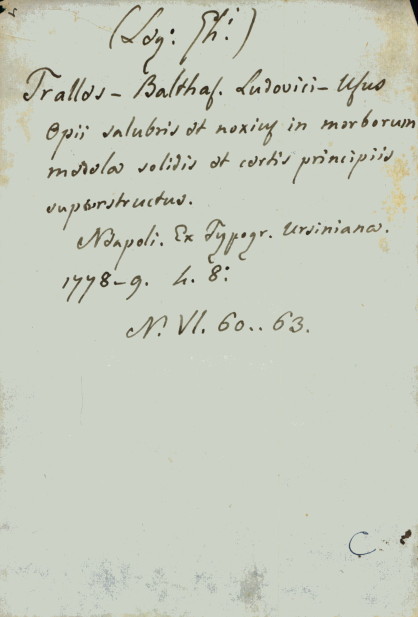 (Leg: Th:)
Tralles - Balthas. Ludovici - Usus
Opii salubris et noxius in morborum
medela solidis et certis principiis
superstructus.
Neapoli. Ex Typogr. Ursiniana.
1778-9. 4. 8:
N. VI. 60.. 63.
C